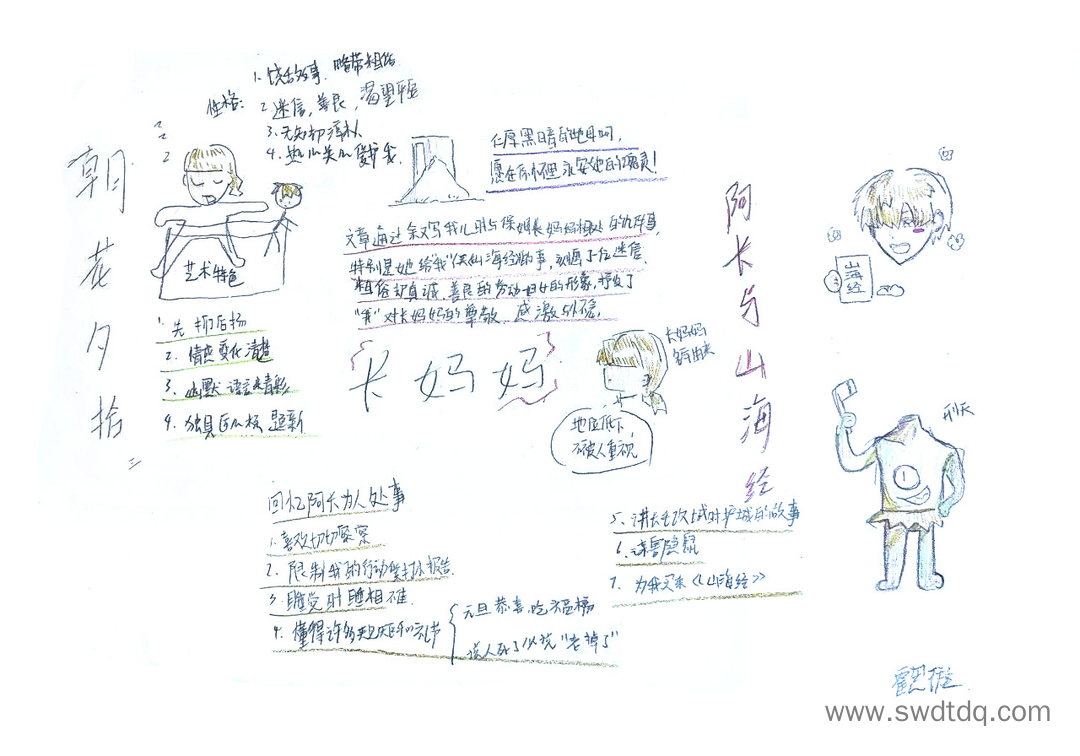 朝花夕拾
性格:
1. 饶舌多事,略带粗俗
2 迷信,善良,渴望平安
3. 无知却淳朴
4. 热心关心爱护我.
仁厚黑暗的地母呵,
愿在你怀里永安她的魂灵!
文章通过叙写我儿时与保姆长妈妈相处的几件事,
特别是她给我买《山海经》的事,刻画了位迷信、
粗俗却真诚、善良的劳动妇女的形象,抒发了
“我”对长妈妈的尊敬、感激与怀念.
阿长与山海经
山海经
艺术特色
1. 先抑后扬
2. 情感变化清楚
3. 幽默语言精彩
4. 独具匠心 题新
长妈妈
长妈妈
地位低下
不被人重视
刑天
回忆阿长为人处事
1. 喜欢切切察察
2. 限制我的行动 打小报告.
3 睡觉时睡相不佳.
4. 懂得许多 礼节
元旦恭喜、吃福橘
说人死了必说“老掉了”
5. 讲长毛攻城时护城的故事
6. 谋害隐鼠
7. 为我买来《山海经》
www.swdtdq.com